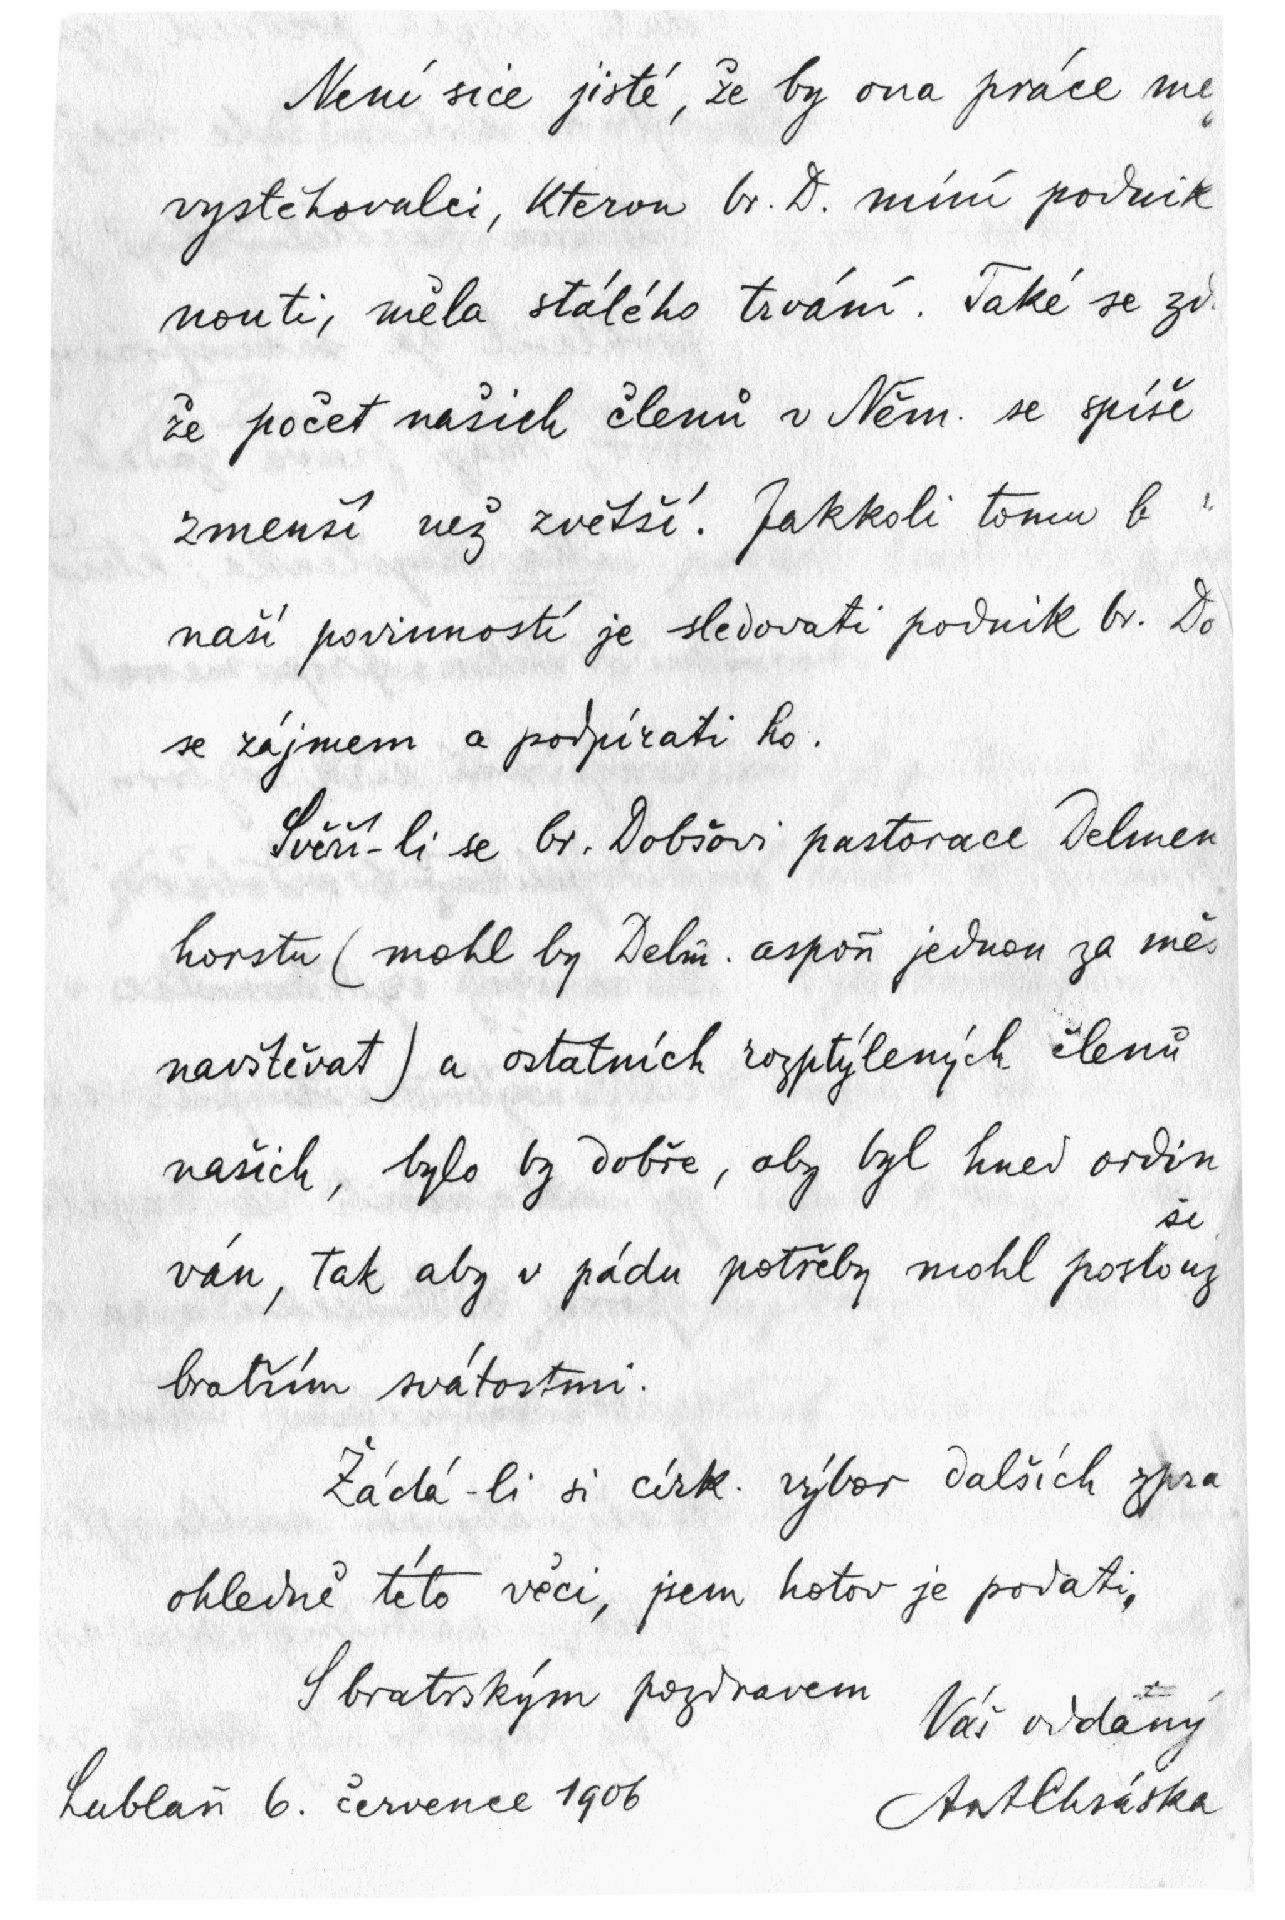 Není sice jisté, že by ona práce me
vystěhovalci, kterou br. D. míní podnik
nouti, měla stálého trvání. Také se zd
že počet našich členů v Něm. se spíše
zmenší než zvětší. Jakkoli tomu b
naší povinností je sledovati podnik br. Do
se zájmem a podpírati ho.
Svěří-li se br. Dobšovi pastorace Delmen
horstu (mohl by Delm. aspoň jednou za měs
navštěvat) a ostatních rozptýlených členů
našich, bylo by dobře, aby byl hned ordin
ván, tak aby v pádu potřeby mohl poslouž
ši
bratřím svátostmi.
Žádá-li si círk. výbor dalších zpra
ohledně této věci, jsem hotov je podati,
S bratrským pozdravem
Váš oddaný
Lublaň 6. července 1906
Ant Chráska